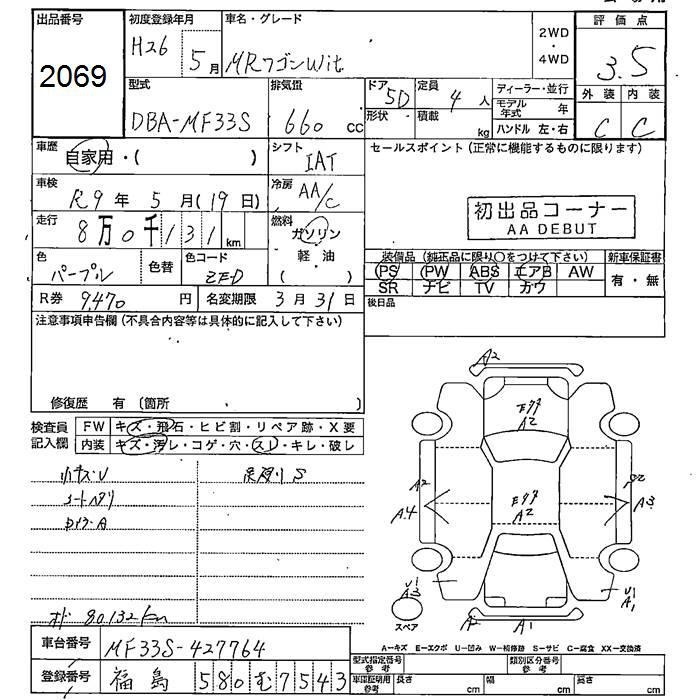 出品番号
2069
初度登録年月
H26 5月
車名・グレード
MRワゴンWit
2WD
・
4WD
評価点
3.5
型式
DBA-MF33S
排気量
660 cc
ドア
5D
形状
定員
4人
積載
kg
ディーラー・並行
モデル年式 年
ハンドル 左・右
外装 内装
C C
車歴
自家用・( )
シフト
IAT
セールスポイント (正常に機能するものに限ります)
車検
R9年 5月 (19日)
冷房
AA/C
初出品コーナー
AA DEBUT
走行
8万0千131km
燃料
ガソリン
軽油
( )
色
パープル
色替
色コード
ZED
装備品 (純正品に限り○をつけて下さい)
PS PW ABS エアB AW
SR ナビ TV カワ
新車保証書
有・無
R券 9,470円
名変期限 3月31日
後日品
注意事項申告欄 (不具合内容等は具体的に記入して下さい)
修復歴 有 (箇所
検査員記入欄
FW キズ・飛石・ヒビ割・リペア跡・X要
内装 キズ・汚レ・コゲ・穴・スレ・キレ・破レ
小キズ・U
シートヘタリ
足廻りS
オド 80,132km
A2
A2
A2
A4
A2
A3
U1
A3
U1
A1
A2 A1
スペア
A-キズ E-エクボ U-凹み W-補修跡 S-サビ C-腐食 XX-交換済
車台番号
MF33S-427764
登録番号
福島 580 む 7543
型式指定番号
参考
類別区分番号
参考
車庫証明用
参考
長さ cm
幅 cm
高さ cm